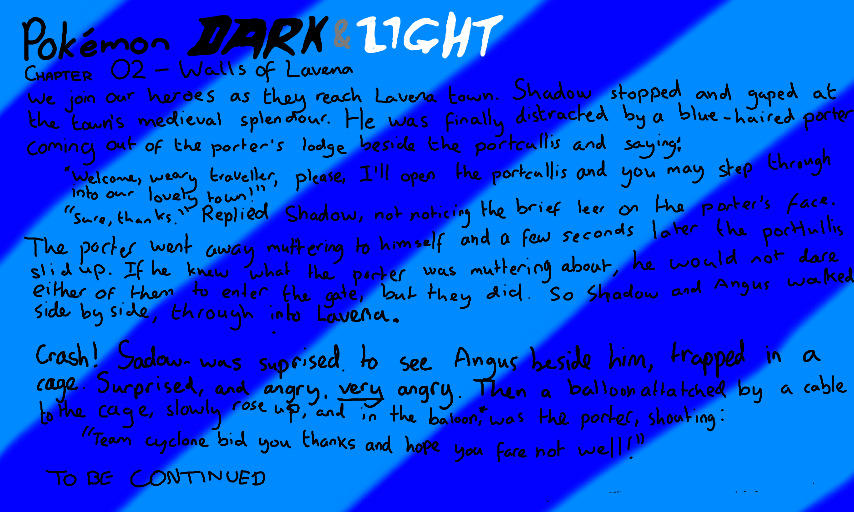 Pokémon DARK & LIGHT
CHAPTER 02 - Walls of Lavena
We join our heroes as they reach Lavena town. Shadow stopped and gaped at
the town's medieval splendour. He was finally distracted by a blue-haired porter
coming out of the porter's lodge beside the portcullis and saying:
"Welcome, weary traveller, please, I'll open the portcullis and you may step through
into our lovely town!"
"Sure, thanks." Replied Shadow, not noticing the brief leer on the porter's face.
The porter went away muttering to himself and a few seconds later the portfullis
slid up. If he knew what the porter was muttering about, he would not dare
either of them to enter the gate, but they did. So Shadow and Angus walked
side by side, through into Lavena.
Crash! Sadow was suprised to see Angus beside him, trapped in a
cage. Surprised, and angry, very angry. Then a balloon attatched by a cable
to the cage, slowly rose up, and in the baloon, was the porter, shouting:
"Team cyclone bid you thanks and hope you fare not well!"
TO BE CONTINUED